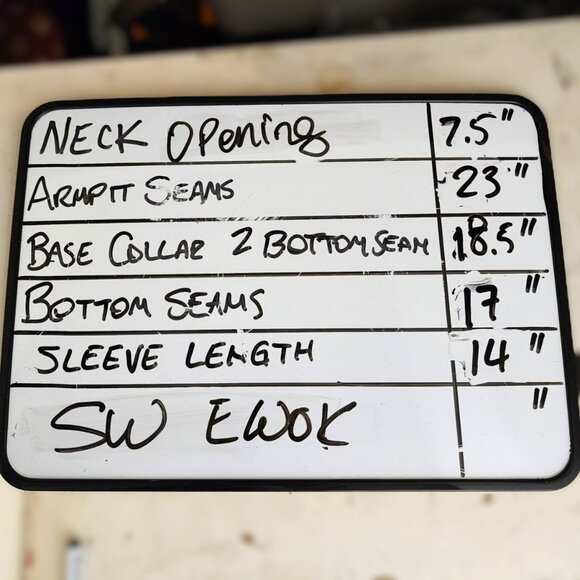 NECK OPENING 7.5"
ARMPIT SEAMS 23"
BASE COLLAR 2 BOTTOM SEAM 18.5"
BOTTOM SEAMS 17"
SLEEVE LENGTH 14"
SW EWOK "